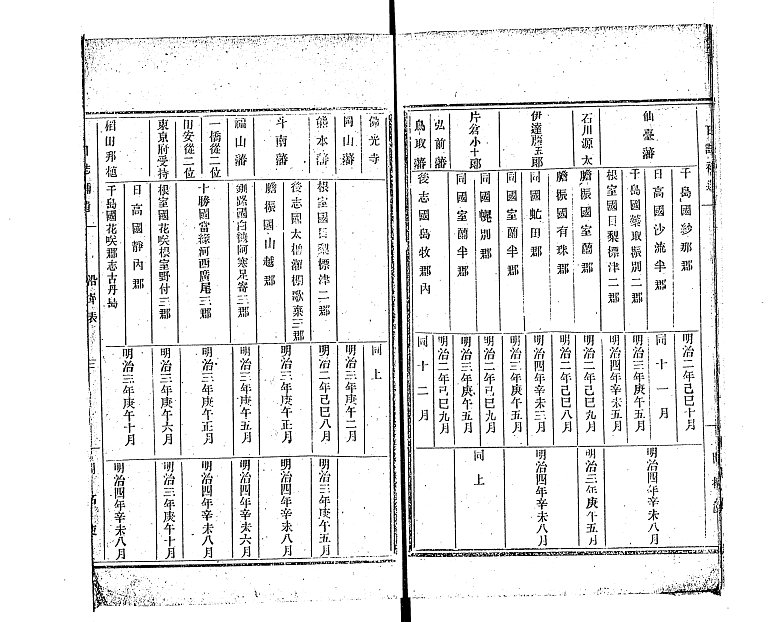 仙臺藩
千島國紗那郡
明治二年己巳十月
日高國沙流半郡
同十一月
千島國蘂取振別二郡
明治三年庚午五月
根室國目梨標津二郡
明治四年辛未五月
明治四年辛未八月
石川源太
膽振國室蘭郡
明治二年己巳九月
明治三年庚午五月
伊達藤五郎
膽振國有珠郡
明治二年己巳八月
同國虻田郡
明治四年辛未三月
同國室蘭半郡
明治三年庚午五月
明治四年辛未八月
片倉小十郎
同國幌別郡
明治二年己巳九月
同國室蘭半郡
明治三年庚午五月
同上
弘前藩
明治二年己巳九月
鳥取藩
後志國島牧郡內
同十二月
佛光寺
同上
岡山藩
明治三年庚午二月
熊本藩
根室國目梨標津二郡
明治二年己巳八月
明治三年庚午五月
斗南藩
後志國太櫓瀨棚歌棄三郡
膽振國山越郡
明治三年庚午正月
明治四年辛未八月
福山藩
釧路國白糠阿寒足寄三郡
明治三年庚午五月
明治四年辛未六月
一橋從二位
田安從二位
十勝國當緣河西廣尾三郡
明治三年庚午正月
明治四年辛未八月
東京府受持
根室國花咲根室野付三郡
明治三年庚午六月
明治三年庚午十月
稻田邦植
日高國靜內郡
千島國花咲郡志古丹島
明治三年庚午十月
明治四年辛未八月